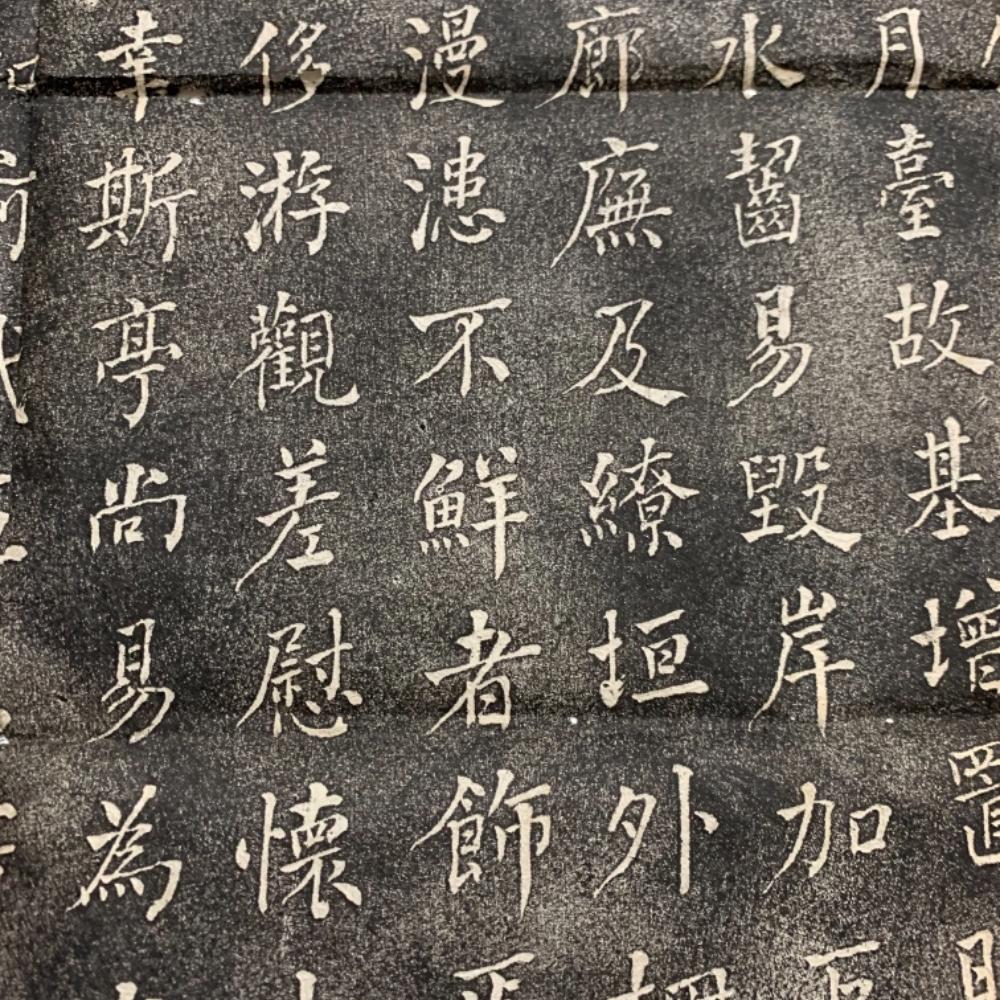 月臺故基增置
水齧易毀岸加
廊廡及繚垣外
漫漶不鮮者飾
侈游觀差慰懷
幸斯亭尚易為